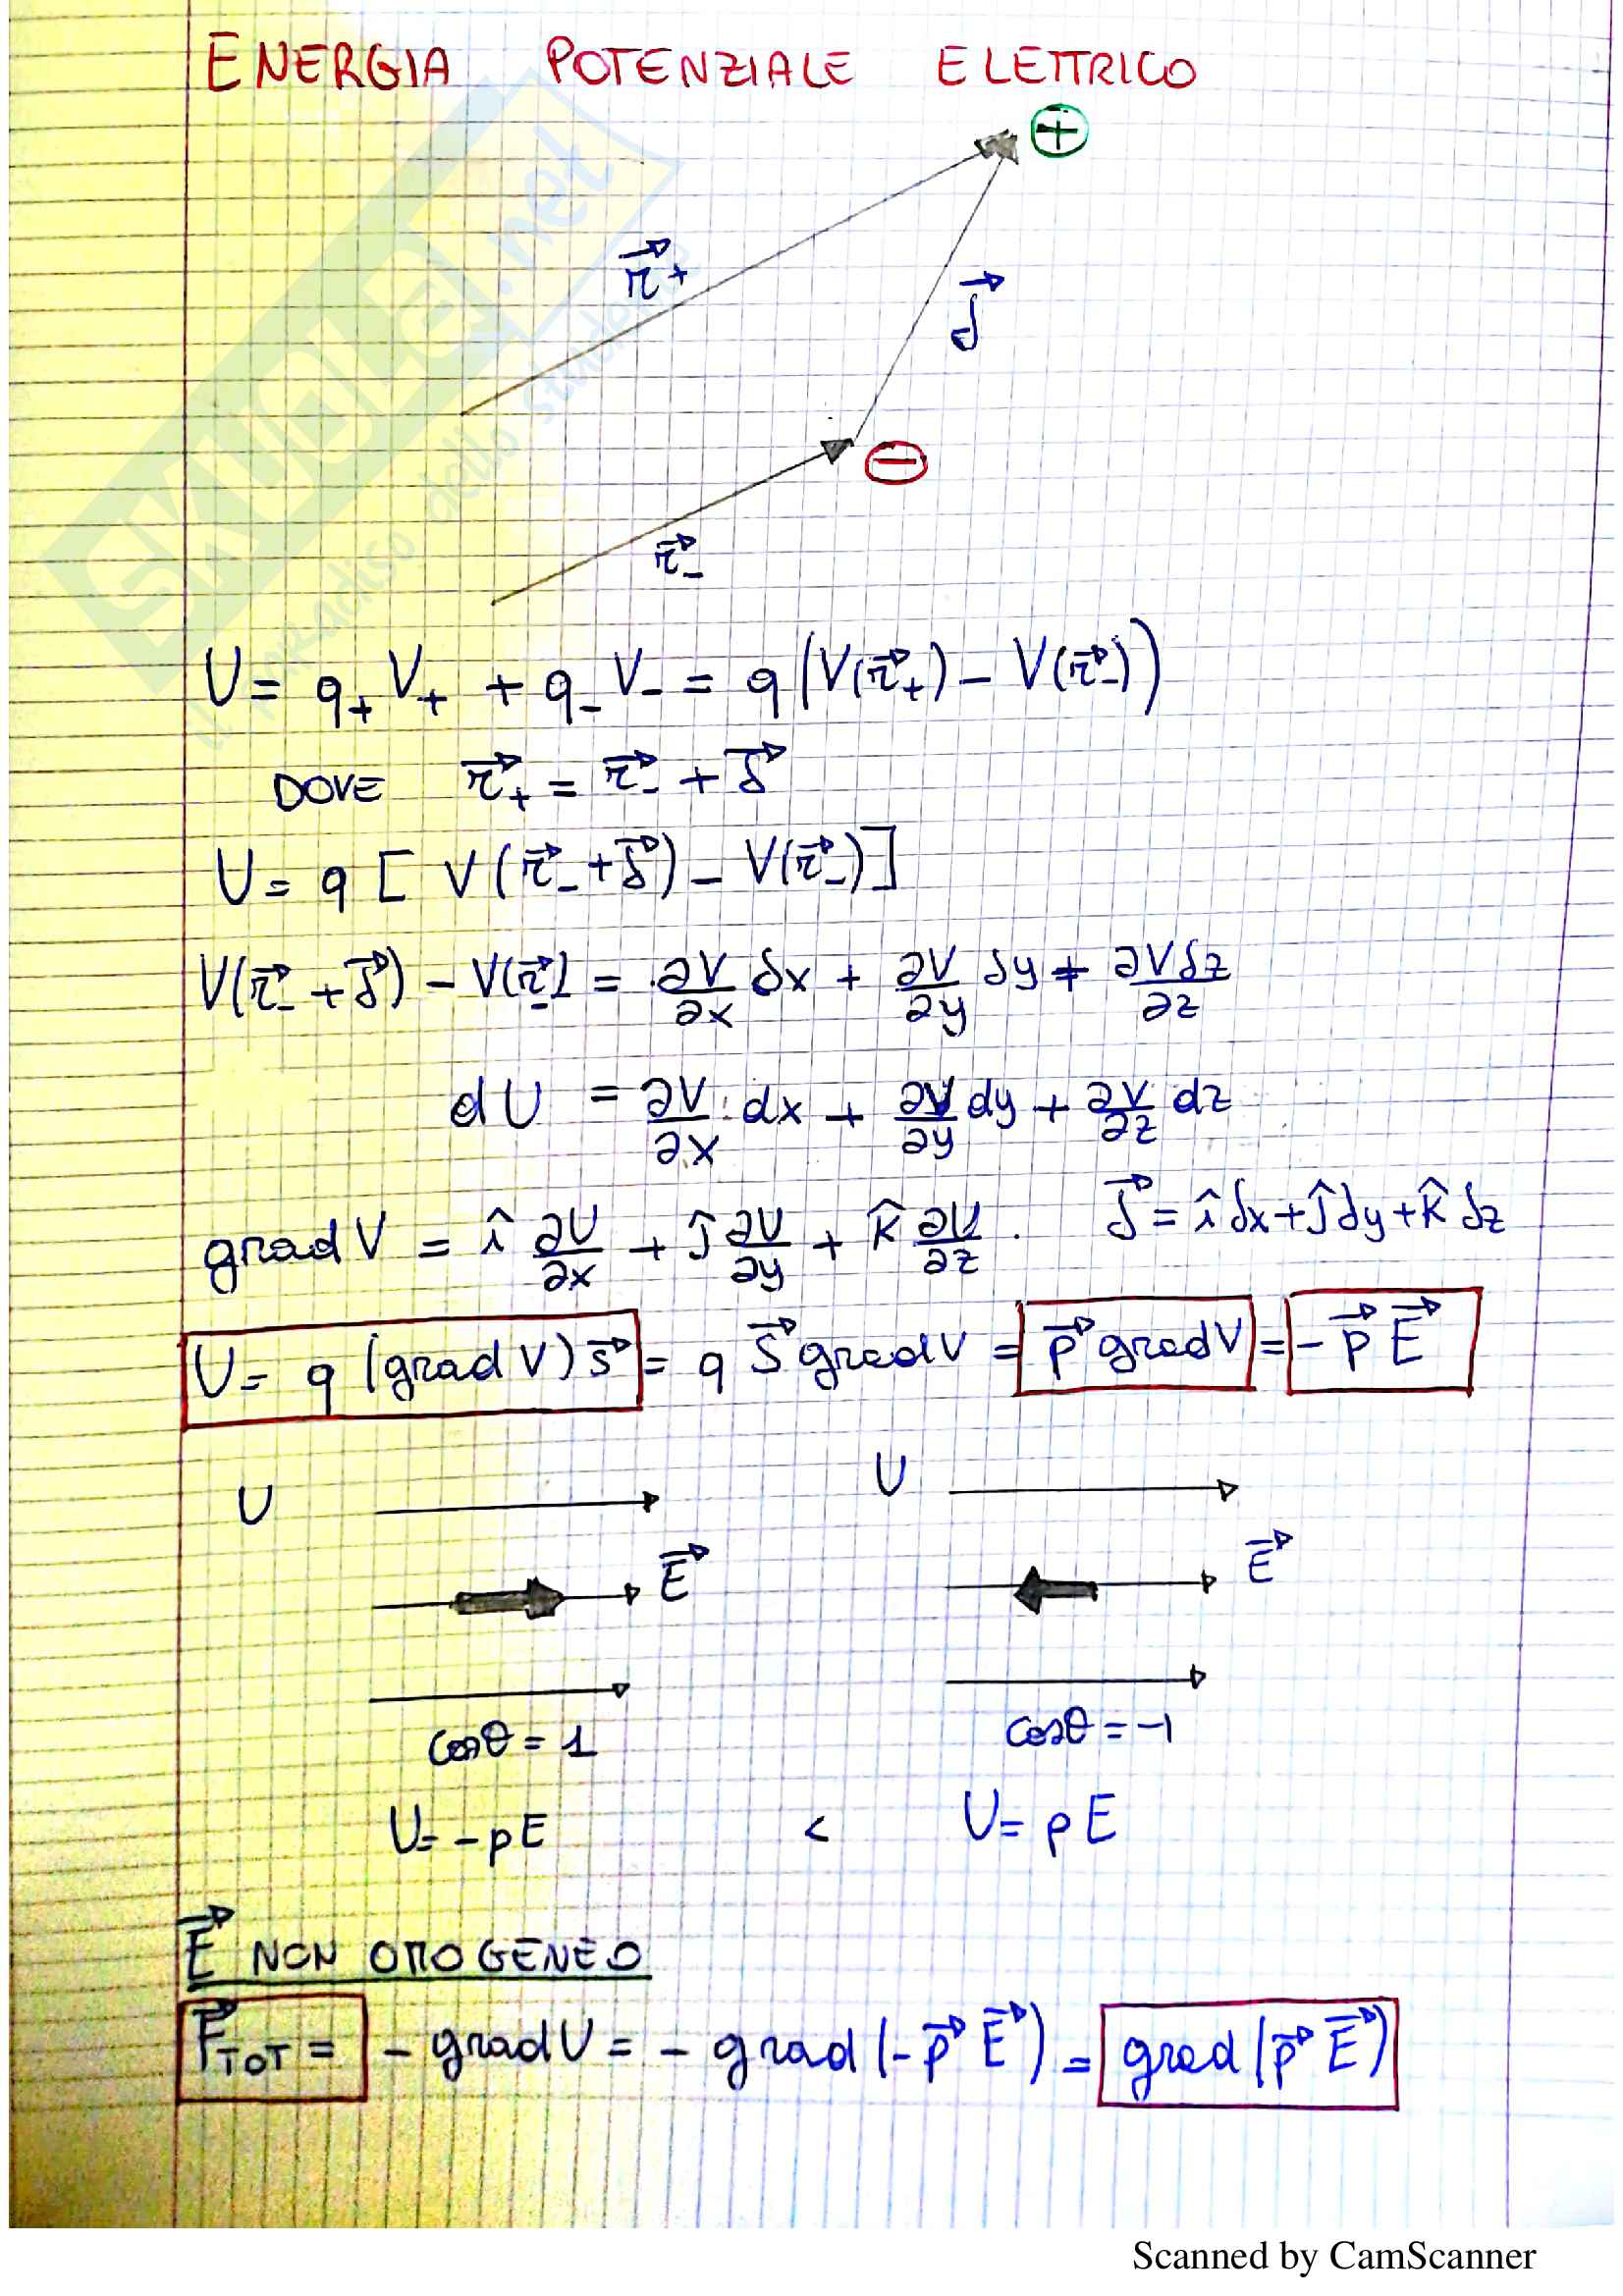 ENERGIA POTENZIALE ELETTRICO
+
r⃗+
δ⃗
−
r⃗₋
SKUOLA.net
il paradiso dello studente
U = q₊V₊ + q₋V₋ = q(V(r⃗₊) − V(r⃗₋))
DOVE r⃗₊ = r⃗₋ + δ⃗
U = q [ V(r⃗₋ + δ⃗) − V(r⃗₋)]
V(r⃗₋ + δ⃗) − V(r⃗₋) = ∂V/∂x δx + ∂V/∂y δy + ∂Vδz/∂z
dU = ∂V/∂x dx + ∂V/∂y dy + ∂V/∂z dz
grad V = î ∂U/∂x + ĵ ∂U/∂y + k̂ ∂U/∂z . δ⃗ = î δx + ĵ δy + k̂ δz
U = q (grad V) s⃗ = q s⃗ grad V = p⃗ grad V = − p⃗ E⃗
U U
E⃗ E⃗
cosθ = 1 cosθ = −1
U = −pE < U = pE
E⃗ NON OMOGENEO
F⃗TOT = − grad U = − grad (−p⃗ E⃗) = grad (p⃗ E⃗)
Scanned by CamScanner